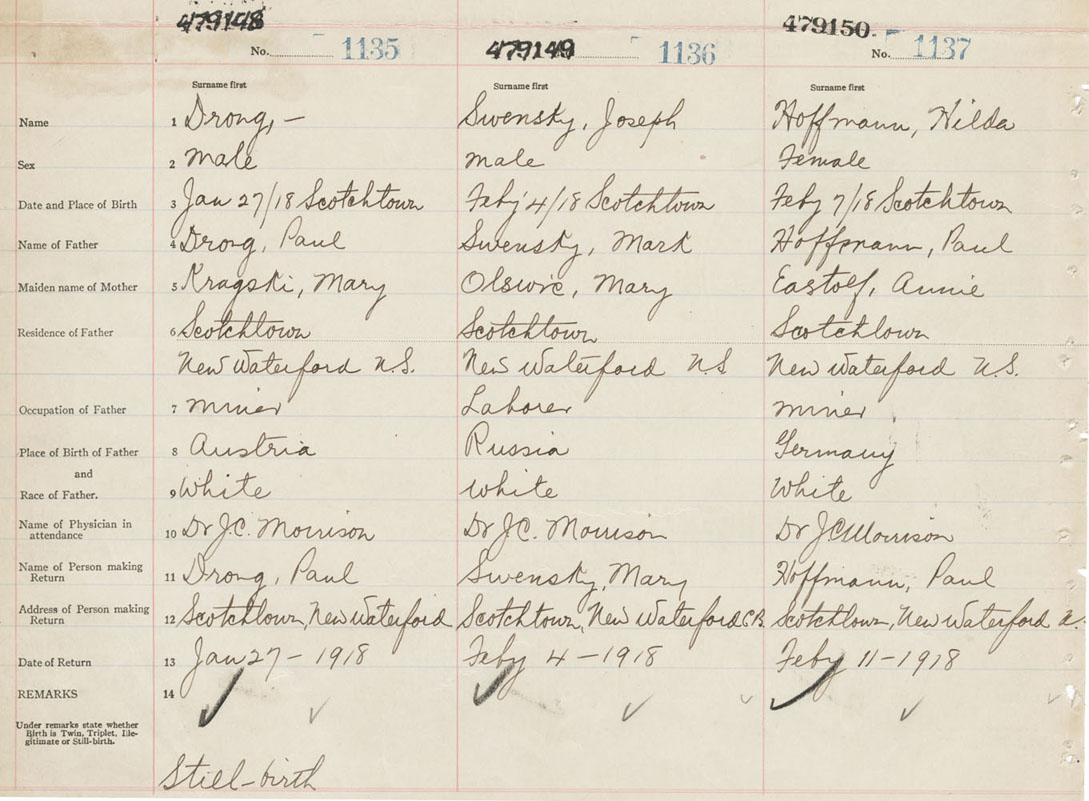 479148 479149 479150.
No. 1135 1136 No. 1137
Surname first Surname first Surname first
Name 1 Drong, — Swensky, Joseph Hoffmann, Hilda
Sex 2 Male Male Female
Date and Place of Birth 3 Jan 27/18 Scotchtown Feby 4/18 Scotchtown Feby 7/18 Scotchtown
Name of Father 4 Drong, Paul Swensky, Mark Hoffmann, Paul
Maiden name of Mother 5 Kragski, Mary Olswic, Mary Eastolf, Annie
Residence of Father 6 Scotchtown Scotchtown Scotchtown
New Waterford N.S. New Waterford N.S New Waterford N.S.
Occupation of Father 7 Miner Laborer Miner
Place of Birth of Father 8 Austria Russia Germany
and
Race of Father. 9 White White White
Name of Physician in
attendance 10 Dr J.C. Morrison Dr J.C. Morrison Dr J C Morrison
Name of Person making
Return 11 Drong, Paul Swensky, Mary Hoffmann, Paul
Address of Person making
Return 12 Scotchtown, New Waterford Scotchtown, New Waterford C.B. Scotchtown, New Waterford
Date of Return 13 Jan 27 - 1918 Feby 4 - 1918 Feby 11 - 1918
REMARKS 14
Under remarks state whether
Birth is Twin, Triplet, Ille-
gitimate or Still-birth.
Still-birth